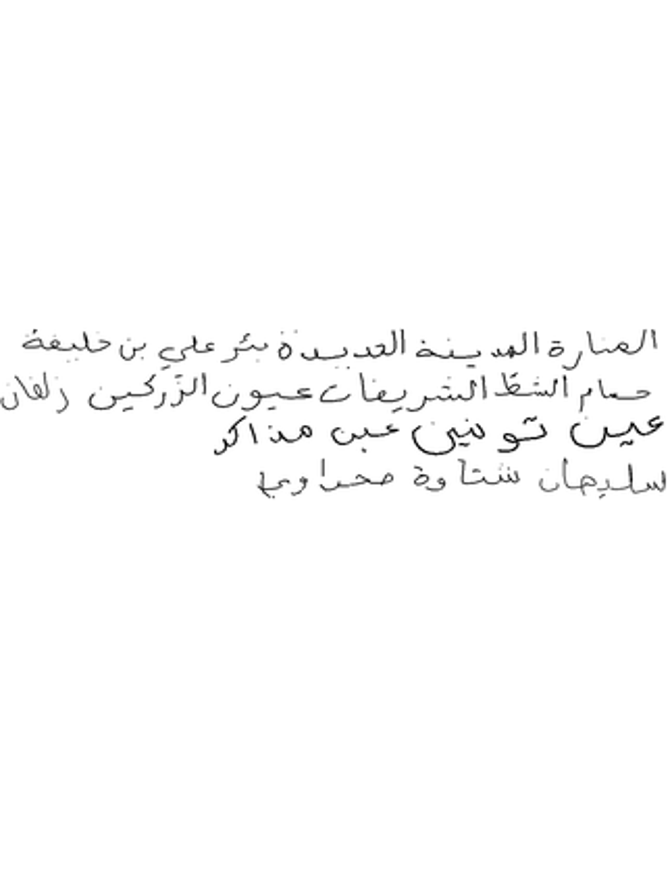 المنارة المدينة الجديدة بئر علي بن خليفة
حمام الشط الشريفات عيون الزركين زلفان
عين تونين عين مذاكر
سليمان شتاوة صحراوي